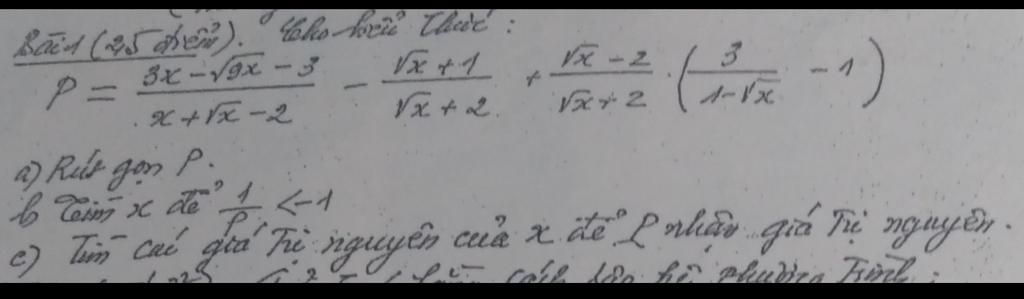 Bài 1 (2,5 điểm). Cho biểu thức:
P = \frac{3x - \sqrt{9x} - 3}{x + \sqrt{x} - 2} - \frac{\sqrt{x} + 1}{\sqrt{x} + 2} + \frac{\sqrt{x} - 2}{\sqrt{x} + 2} \cdot \left( \frac{3}{1 - \sqrt{x}} - 1 \right)
a) Rút gọn P.
b) Tìm x để \frac{1}{P} < -1
c) Tìm các giá trị nguyên của x để P nhận giá trị nguyên.